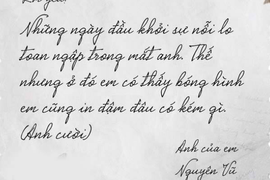 Những ngày đầu khởi sự nỗi lo
toan ngập trong mắt anh. Thế
nhưng ở đó em có thấy bóng hình
em cũng in đậm đâu có kém gì.
(Anh cười)
Anh của em
Nguyên Vũ